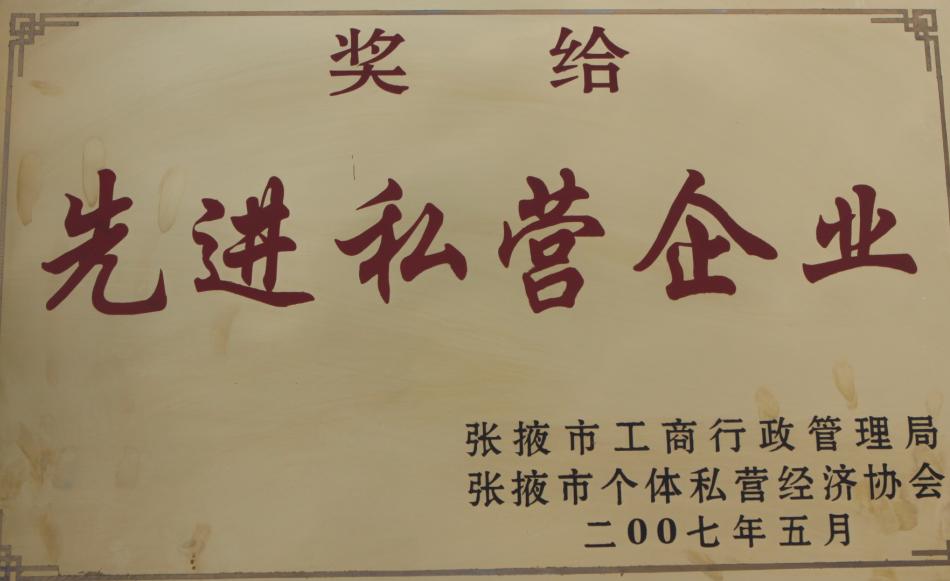 奖给
先进私营企业
张掖市工商行政管理局
张掖市个体私营经济协会
二00七年五月